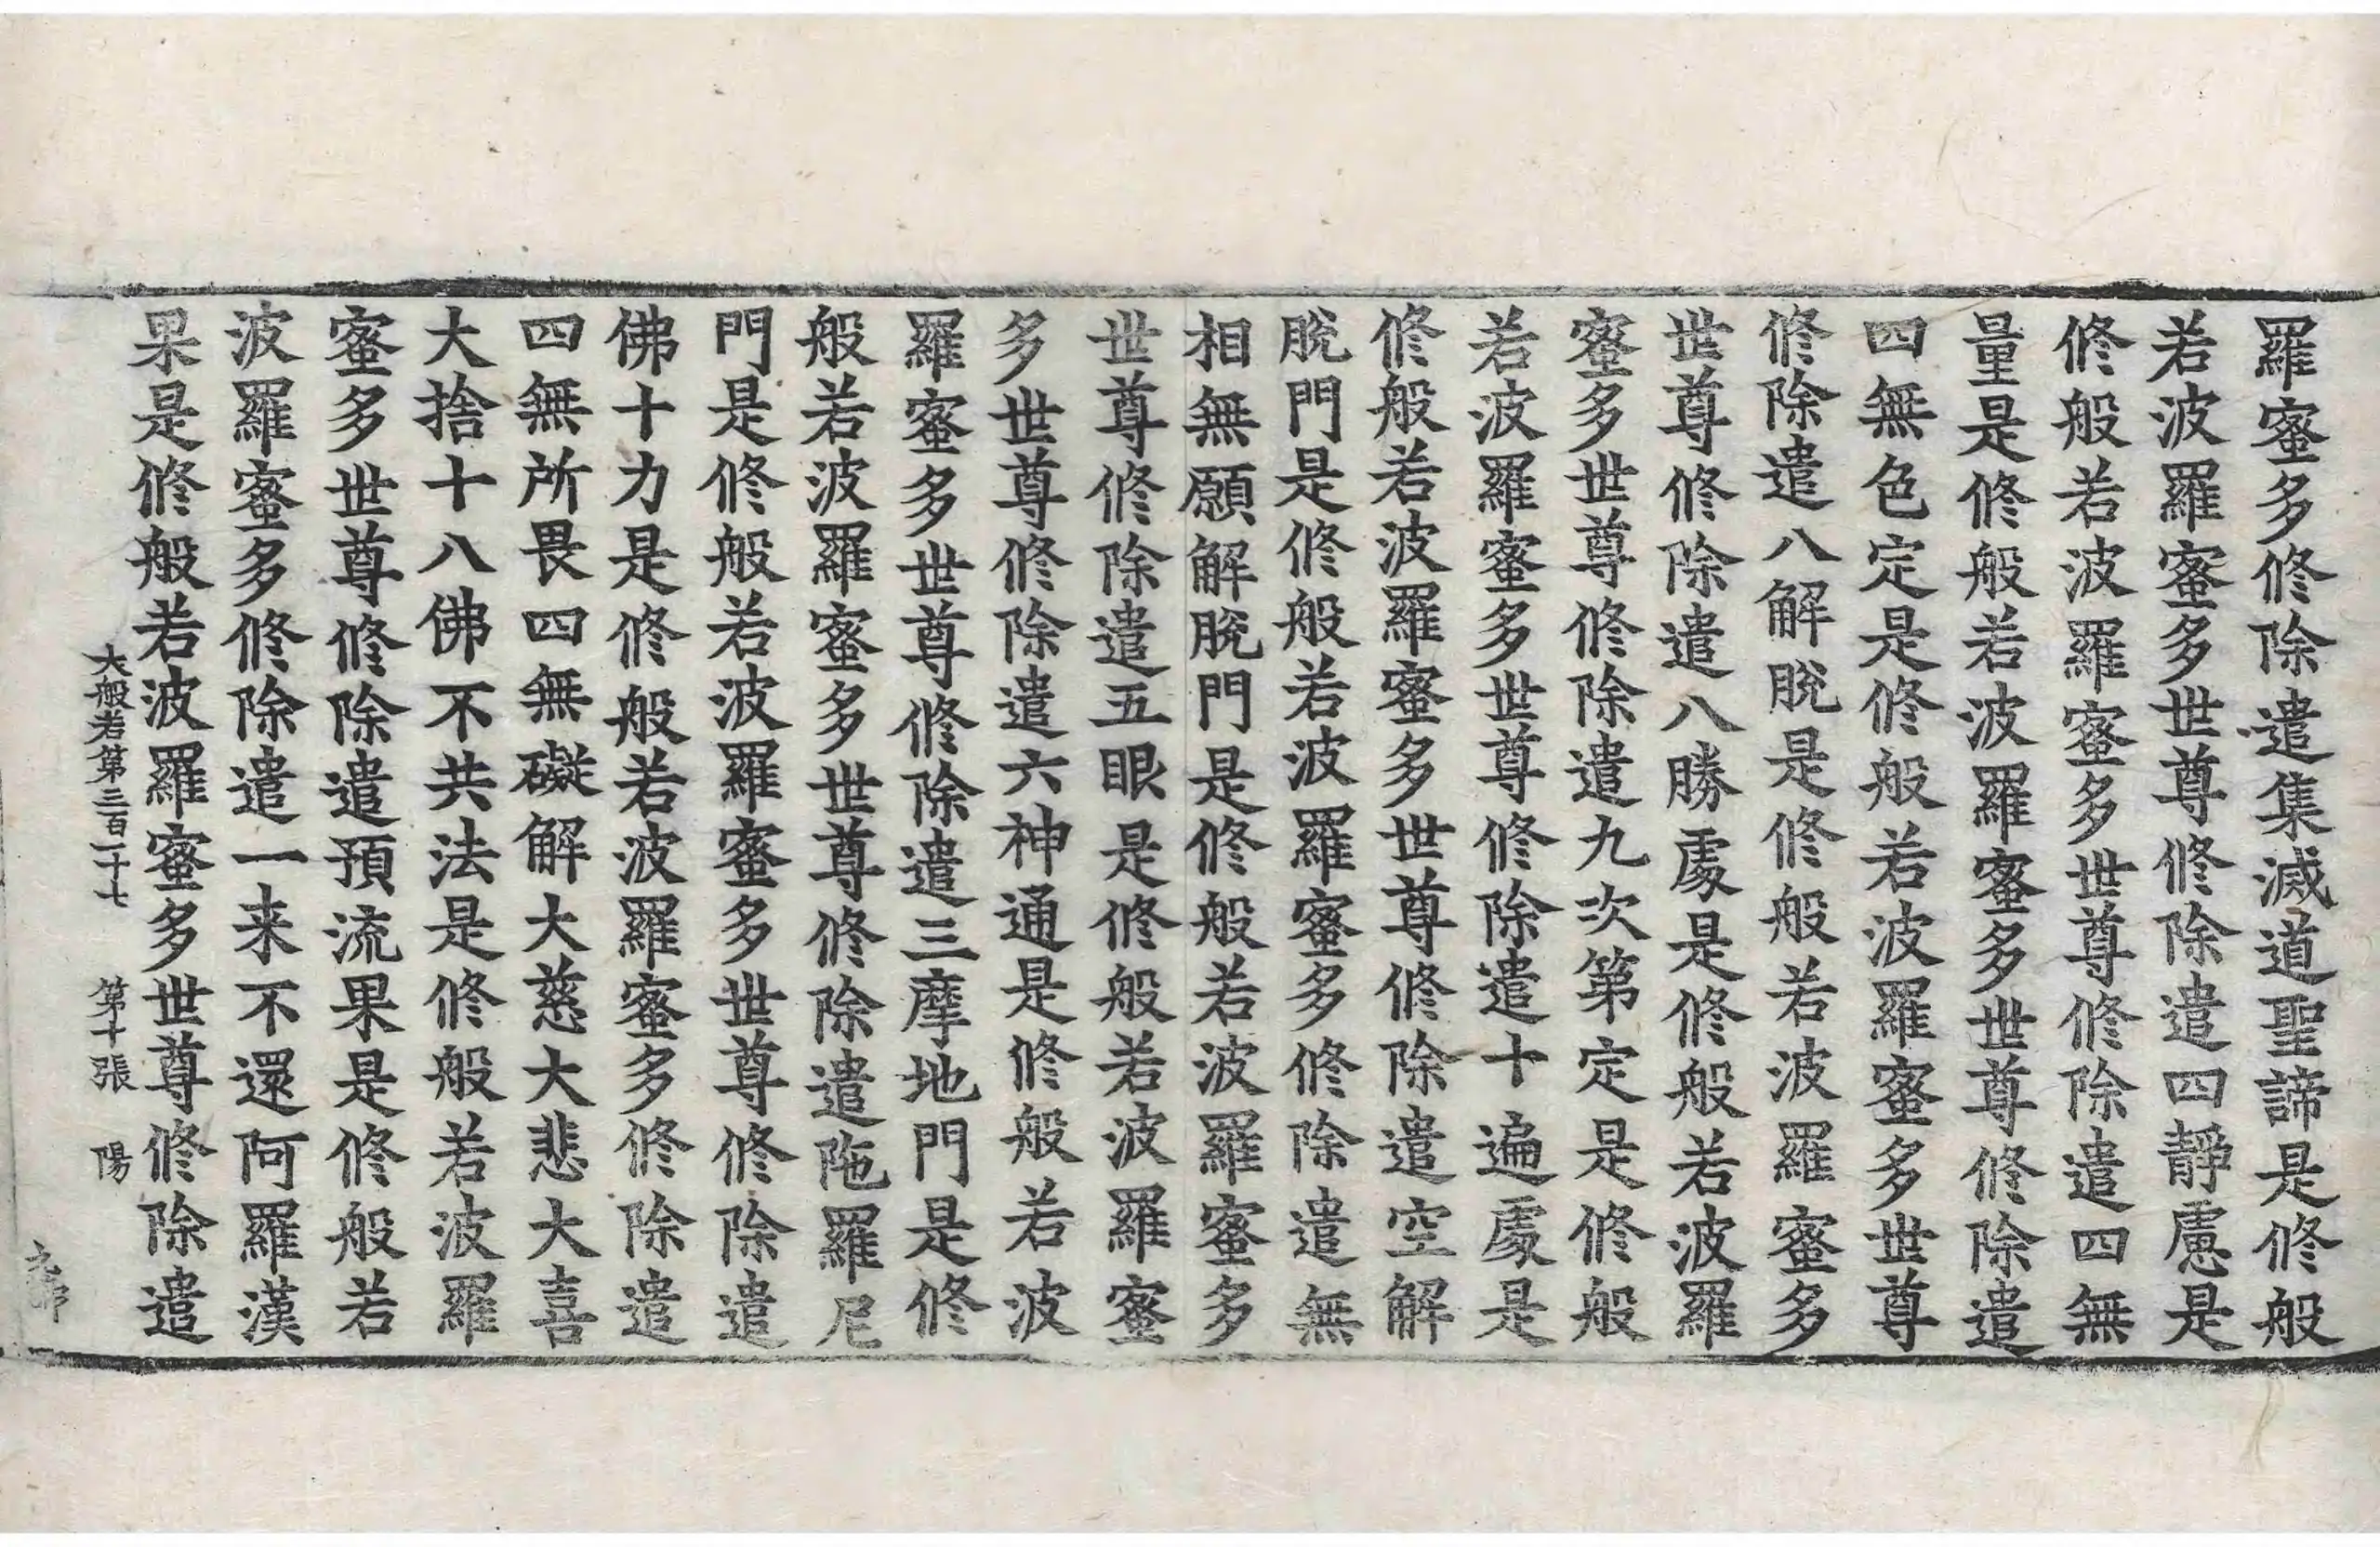 羅蜜多修除遣集滅道聖諦是修般
若波羅蜜多世尊修除遣四靜慮是
修般若波羅蜜多世尊修除遣四無
量是修般若波羅蜜多世尊修除遣
四無色定是修般若波羅蜜多世尊
修除遣八解脫是修般若波羅蜜多
世尊修除遣八勝處是修般若波羅
蜜多世尊修除遣九次第定是修般
若波羅蜜多世尊修除遣十遍處是
修般若波羅蜜多世尊修除遣空解
脫門是修般若波羅蜜多修除遣無
相無願解脫門是修般若波羅蜜多
世尊修除遣五眼是修般若波羅蜜
多世尊修除遣六神通是修般若波
羅蜜多世尊修除遣三摩地門是修
般若波羅蜜多世尊修除遣陁羅尼
門是修般若波羅蜜多世尊修除遣
佛十力是修般若波羅蜜多修除遣
四無所畏四無礙解大慈大悲大喜
大捨十八佛不共法是修般若波羅
蜜多世尊修除遣預流果是修般若
波羅蜜多修除遣一来不還阿羅漢
果是修般若波羅蜜多世尊修除遣
大般若第三百一十七 第十張 陽